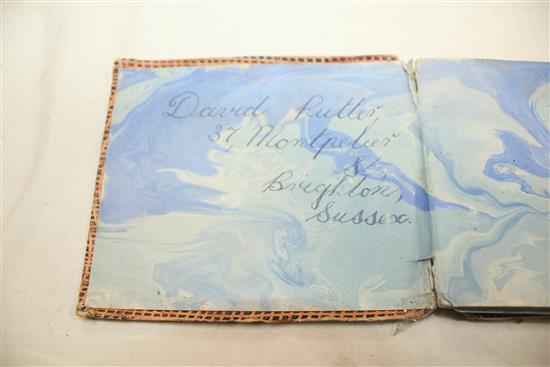 David Rutter,
37, Montpelier
St,
Brighton,
Sussex.